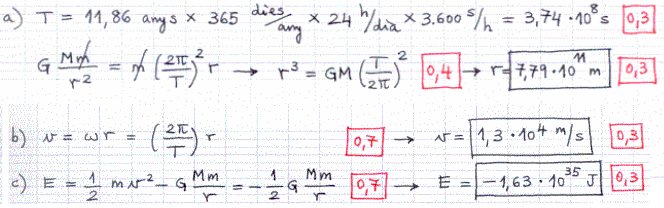 a) T = 11,86 anys × 365 dies/any × 24 h/dia × 3.600 s/h = 3,74 · 10⁸ s 0,3
G Mm/r² = m (2π/T)² r → r³ = GM (T/2π)² 0,4 → r = 7,79 · 10¹¹ m 0,3
b) v = ω r = (2π/T) r 0,7 → v = 1,3 · 10⁴ m/s 0,3
c) E = 1/2 m v² - G Mm/r = - 1/2 G Mm/r 0,7 → E = -1,63 · 10³⁵ J 0,3